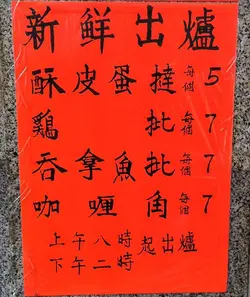 新鮮出爐
酥皮蛋撻每個5
鷄批每個7
吞拿魚批每個7
咖喱角每個7
上午八時起出爐
下午二時